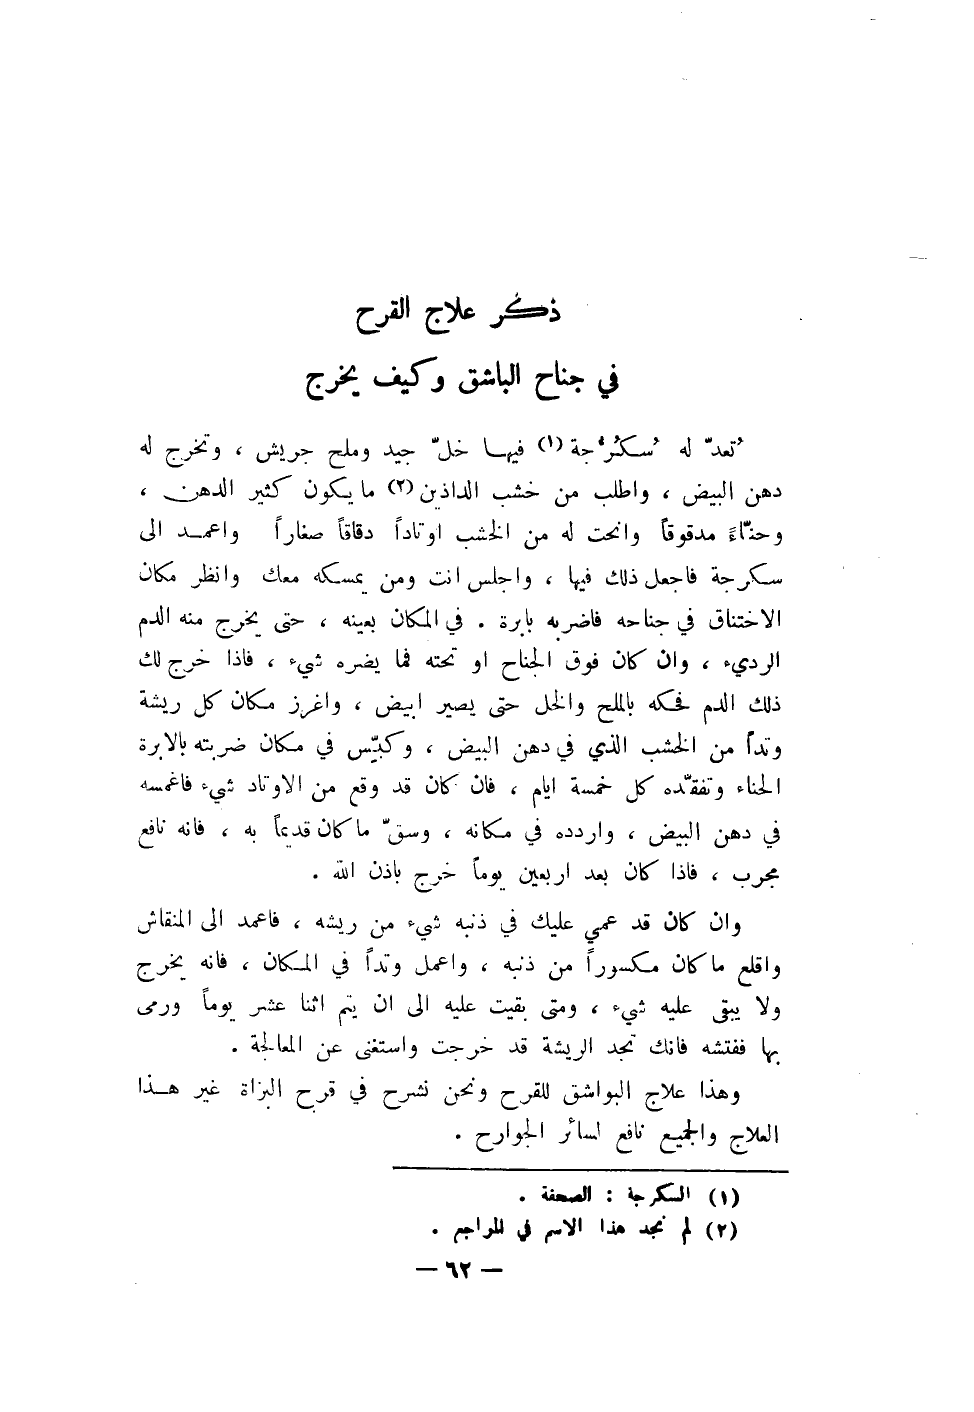 ذكر علاج القرح
في جناح الباشق وكيف يخرج
تُعدّ له سُكُرُّجة (١) فيهـا خلّ جيد وملح جريش ، وتخرج له
دهن البيض ، واطلب من خشب الداذين (٢) ما يكون كثير الدهن ،
وحنّاءً مدقوقاً وانحت له من الخشب اوتاداً دقاقاً صغاراً واعمـد الى
سكرجة فاجعل ذلك فيها ، واجلس انت ومن يمسكه معك وانظر مكان
الاختناق في جناحه فاضربه بابرة . في المكان بعينه ، حتى يخرج منه الدم
الرديء ، وان كان فوق الجناح او تحته فما يضره شيء ، فاذا خرج لك
ذلك الدم فحكه بالملح والخل حتى يصير ابيض ، واغرز مكان كل ريشة
وتداً من الخشب الذي في دهن البيض ، وكبّس في مكان ضربته بالابرة
الحناء وتفقّده كل خمسة ايام ، فان كان قد وقع من الاوتاد شيء فاغمسه
في دهن البيض ، واردده في مكانه ، وسقّ ما كان قديماً به ، فانه نافع
مجرب ، فاذا كان بعد اربعين يوماً خرج باذن الله .
وان كان قد عمي عليك في ذنبه شيء من ريشه ، فاعمد الى المنقاش
واقلع ما كان مكسوراً من ذنبه ، واعمل وتداً في المكان ، فانه يخرج
ولا يبقى عليه شيء ، ومتى بقيت عليه الى ان يتم اثنا عشر يوماً ورمى
بها ففتشه فانك تجد الريشة قد خرجت واستغنى عن المعالجة .
وهذا علاج البواشق للقرح ونحن نشرح في قرح البزاة غير هـذا
العلاج والجميع نافع لسائر الجوارح .
(١) السكرجة : الصحفة .
(٢) لم نجد هذا الاسم في المراجم .
— ٦٢ —